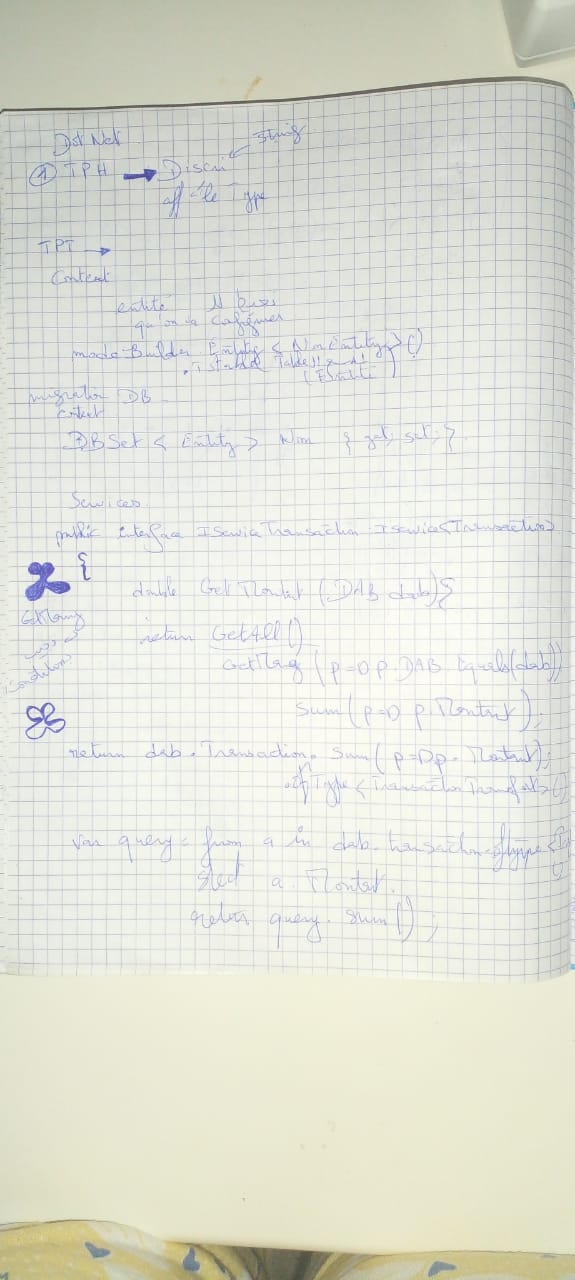 Dot Net
String
① TPH → Discri
Type
TPT →
Context
entité
qu'on a
modelBuilder. Entity < NomEntity > ()
migration DB
context
DBSet < Entity > Nom { get; set; }
Services
public interface IServiceTransaction IService<Transaction>
{
double GetMontant (DAB dab) {
GetMany
avec
Condition
return GetAll()
GetMany (p=> p.DAB. Equals(dab))
Sum (p=> p.Montant);
return dab.Transaction. Sum( p=>p. Montant);
ofType < TransactionTransfert > ()
var query = from a in dab.transaction.oftype <
select a. Montant.
return query. sum();